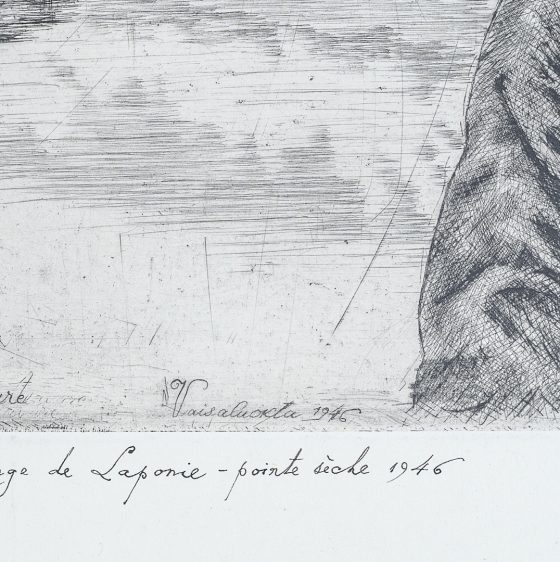 Vaisaluokta 1946
de Laponie - pointe sèche 1946